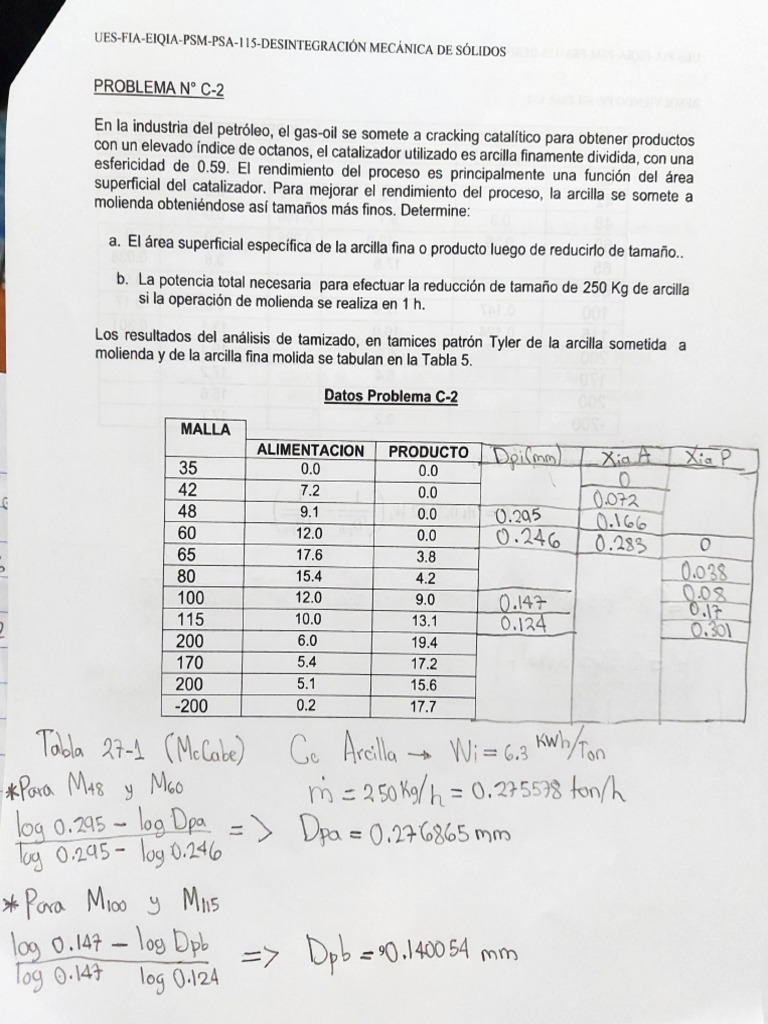 UES-FIA-EIQIA-PSM-PSA-115-DESINTEGRACIÓN MECÁNICA DE SÓLIDOS
PROBLEMA N° C-2
En la industria del petróleo, el gas-oil se somete a cracking catalítico para obtener productos
con un elevado índice de octanos, el catalizador utilizado es arcilla finamente dividida, con una
esfericidad de 0.59. El rendimiento del proceso es principalmente una función del área
superficial del catalizador. Para mejorar el rendimiento del proceso, la arcilla se somete a
molienda obteniéndose así tamaños más finos. Determine:
a. El área superficial específica de la arcilla fina o producto luego de reducirlo de tamaño..
b. La potencia total necesaria para efectuar la reducción de tamaño de 250 Kg de arcilla
si la operación de molienda se realiza en 1 h.
Los resultados del análisis de tamizado, en tamices patrón Tyler de la arcilla sometida a
molienda y de la arcilla fina molida se tabulan en la Tabla 5.
Datos Problema C-2
MALLA ALIMENTACION PRODUCTO Dpi(mm) Xia A Xia P
35 0.0 0.0 0
42 7.2 0.0 0.072
48 9.1 0.0 0.295 0.166
60 12.0 0.0 0.246 0.283 0
65 17.6 3.8 0.038
80 15.4 4.2 0.08
100 12.0 9.0 0.147 0.17
115 10.0 13.1 0.124 0.301
200 6.0 19.4
170 5.4 17.2
200 5.1 15.6
-200 0.2 17.7
Tabla 27-1 (McCabe) Cc Arcilla → Wi = 6.3 KWh/Ton
*Para M48 y M60 ṁ = 250 Kg/h = 0.275578 ton/h
log 0.295 - log Dpa
log 0.295 - log 0.246 => Dpa = 0.276865 mm
* Para M100 y M115
log 0.147 - log Dpb
log 0.147 log 0.124 => Dpb = 0.140054 mm